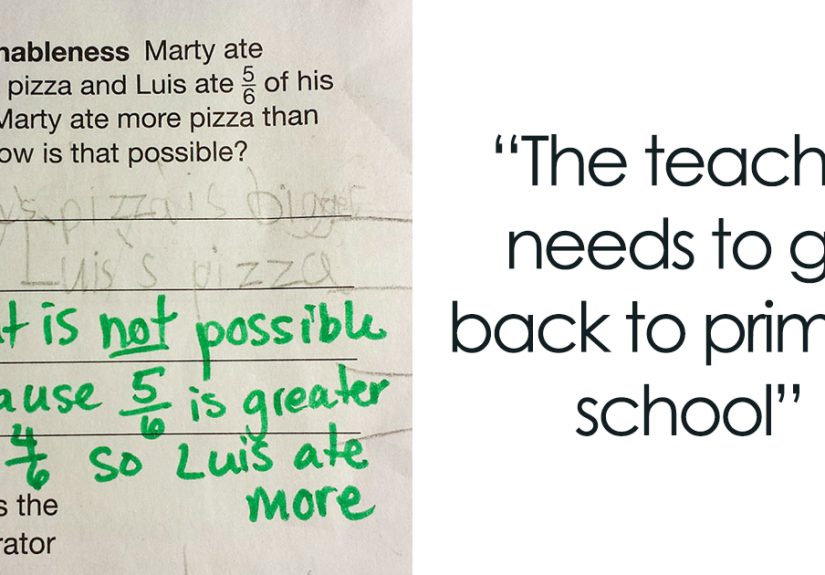 nableness Marty ate
pizza and Luis ate 5/6 of his
Marty ate more pizza than
ow is that possible?
y's pizza is bigger
Luis's pizza
t is not possible
ause 5/6 is greater
4/6 so Luis ate
more
s the
rator
“The teach
needs to g
back to prim
school”